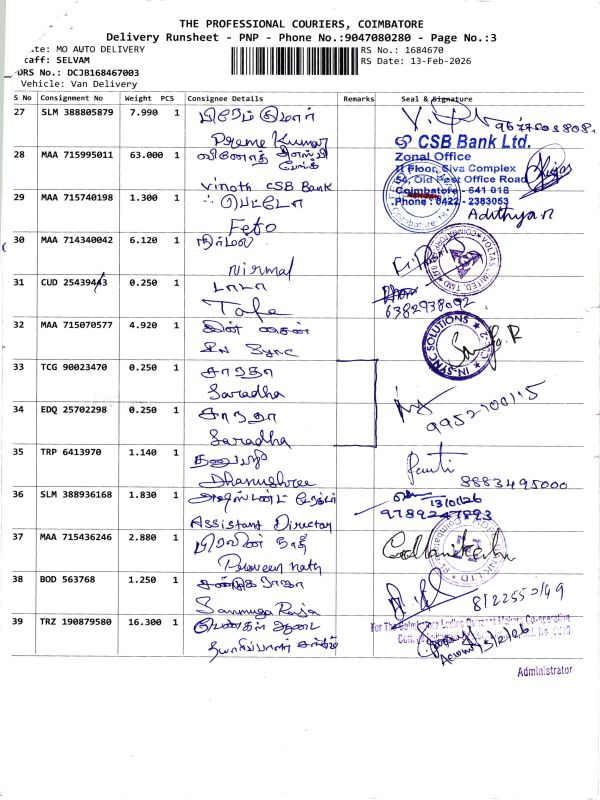 THE PROFESSIONAL COURIERS, COIMBATORE
Delivery Runsheet - PNP - Phone No.:9047080280 - Page No.:3
ute: MO AUTO DELIVERY
RS No.: 1684670
taff: SELVAM
RS Date: 13-Feb-2026
DRS No.: DCJB168467003
Vehicle: Van Delivery
S No Consignment No Weight PCS Consignee Details Remarks Seal & Signature
27 SLM 388805879 7.990 1 பிரேம் குமார்
Preme Kumar
CSB Bank Ltd.
28 MAA 715995011 63.000 1 வினோத்
Zonal Office
II Floor, Siva Complex
54, Old Post Office Road
Vinoth CSB Bank
Coimbatore - 641 018
29 MAA 715740198 1.300 1 பெட்டோ
Phone : 0422 - 2383053
Adithyan
Feto
30 MAA 714340042 6.120 1 நிர்மல்
VOLTAS LIMITED
Nirmal
31 CUD 25439443 0.250 1 டாபே
Tafe
6382938092
32 MAA 715070577 4.920 1 இன் சைன்
IN-SYNC SOLUTIONS
In Sync
33 TCG 90023470 0.250 1 சாரதா
Saradha
9952700115
34 EDQ 25702298 0.250 1 சாரதா
Saradha
35 TRP 6413970 1.140 1 தனுஸ்ரீ
8883495000
Dhanushree
36 SLM 388936168 1.830 1
13/01/26
9789247893
Assistant Director
37 MAA 715436246 2.880 1 பிரவீன் நாத்
Praveen nath
38 BOD 563768 1.250 1 சண்முக ராஜா
8122550149
Sanmuga Raja
39 TRZ 190879580 16.300 1 பெண்கள் ஆடை
தயாரிப்பாளர் சங்கம்
13/2/26
Administrator